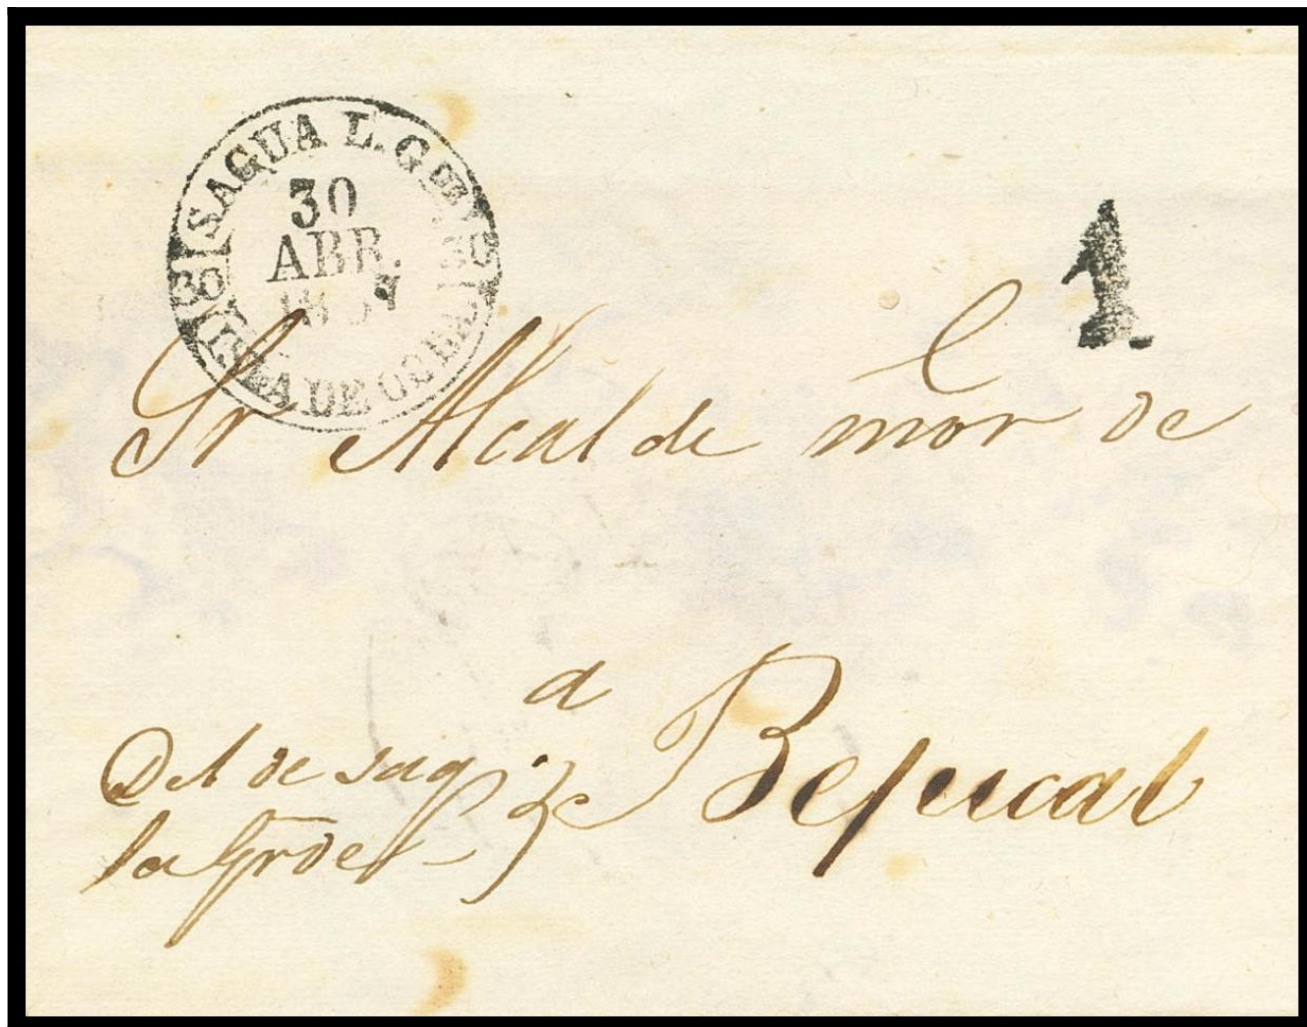 SAGUA L. GDE
30
ABR.
1857
1
Sr Alcalde mor de
a
Bejucal
Del de sag
la Grde